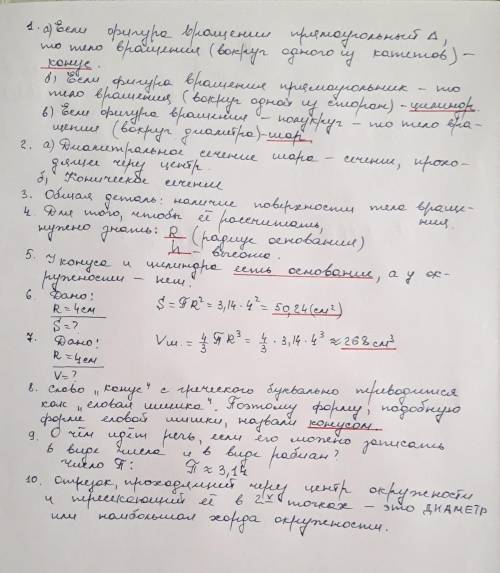 1. а) Если фигура вращения прямоугольный Δ,
то тело вращения (вокруг одного из катетов) –
конус.
б) Если фигура вращения прямоугольник – то
тело вращения (вокруг одной из сторон) – цилиндр
в) Если фигура вращения – полукруг – то тело вра-
щения (вокруг диаметра) – шар.
2. а) Диаметральное сечение шара – сечение, прохо-
дящее через центр.
б) Коническое сечение
3. Общая деталь: наличие поверхности тела враще-
ния.
4. Для того, чтобы её рассчитать,
нужно знать: R (радиус основания)
h – высота.
5. У конуса и цилиндра есть основание, а у ок-
ружности – нет.
6. Дано: S = πR² = 3,14 · 4² = 50,24 (см²)
R = 4 см
S = ?
7. Дано: Vш. = 4/3 πR³ = 4/3 · 3,14 · 4³ ≈ 268 см³
R = 4 см
V = ?
8. Слово „конус“ с греческого буквально переводится
как „еловая шишка“. Поэтому форму, подобную
форме еловой шишки, назвали конусом.
9. О чём идёт речь, если его можно записать
в виде числа и в виде радиан?
Число π: π ≈ 3,14
10. Отрезок, проходящий через центр окружности
и пересекающий её в 2х точках – это ДИАМЕТР
или наибольшая хорда окружности.